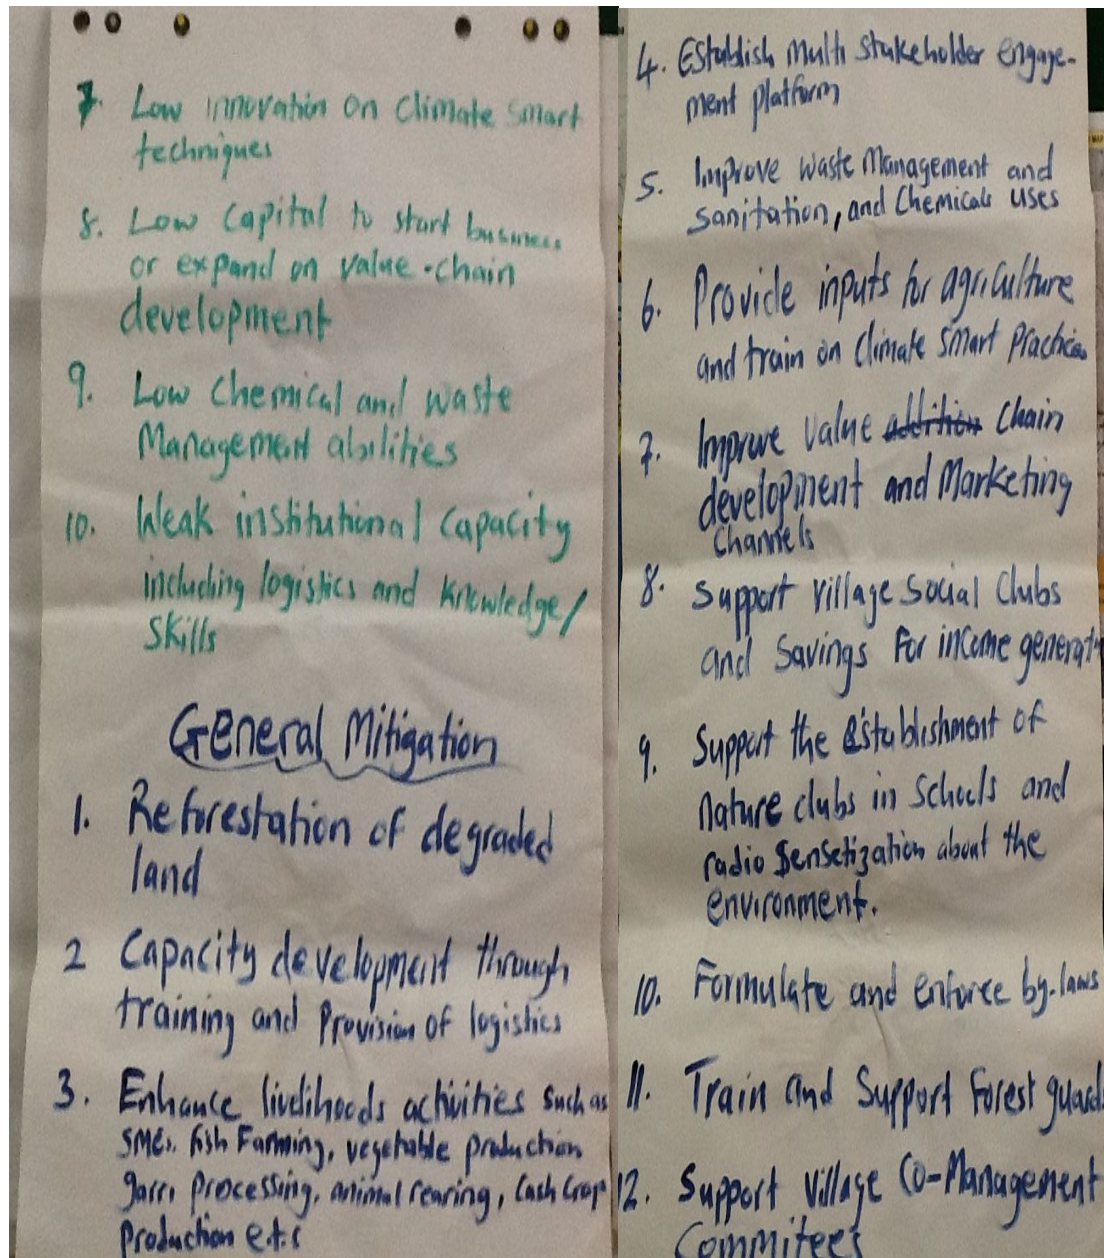 7. Low innovation on Climate Smart
techniques
8. Low Capital to start business
or expand on value-chain
development
9. Low Chemical and waste
Management abilities
10. Weak institutional capacity
including logistics and knowledge/
Skills
General Mitigation
1. Reforestation of degraded
land
2 Capacity development through
training and Provision of logistics
3. Enhance livelihoods activities such as
SMEs, fish Farming, vegetable production
garri processing, animal rearing, Cash Crop
Production e.t.c
4. Establish Multi Stakeholder engage-
ment platform
5. Improve Waste Management and
Sanitation, and Chemicals uses
6. Provide inputs for agriculture
and train on Climate Smart Practices
7. Improve value addition Chain
development and Marketing
Channels
8. Support village Social Clubs
and Savings For income generat
9. Support the Establishment of
nature clubs in Schools and
radio Sensetization about the
environment.
10. Formulate and enforce by-laws
11. Train and Support Forest guards
12. Support village Co-Management
Commitees